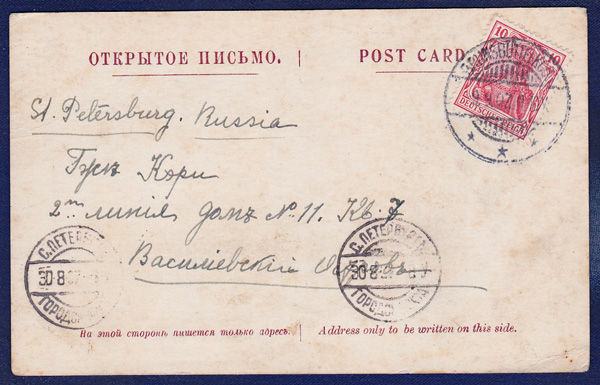 ОТКРЫТОЕ ПИСЬМО. | POST CARD
10 10
DEUTSCHES REICH
St. Petersburg. Russia
Кэри
2ая линія домъ № 11. Кв. 7
Василіевскій Островъ
С.ПЕТЕРБУРГЪ
30 8 07
ГОРОДСК.
С.ПЕТЕРБУРГЪ
30 8
ГОРОДСК. ПОЧТА
На этой сторонѣ пишется только адресъ. | Address only to be written on this side.